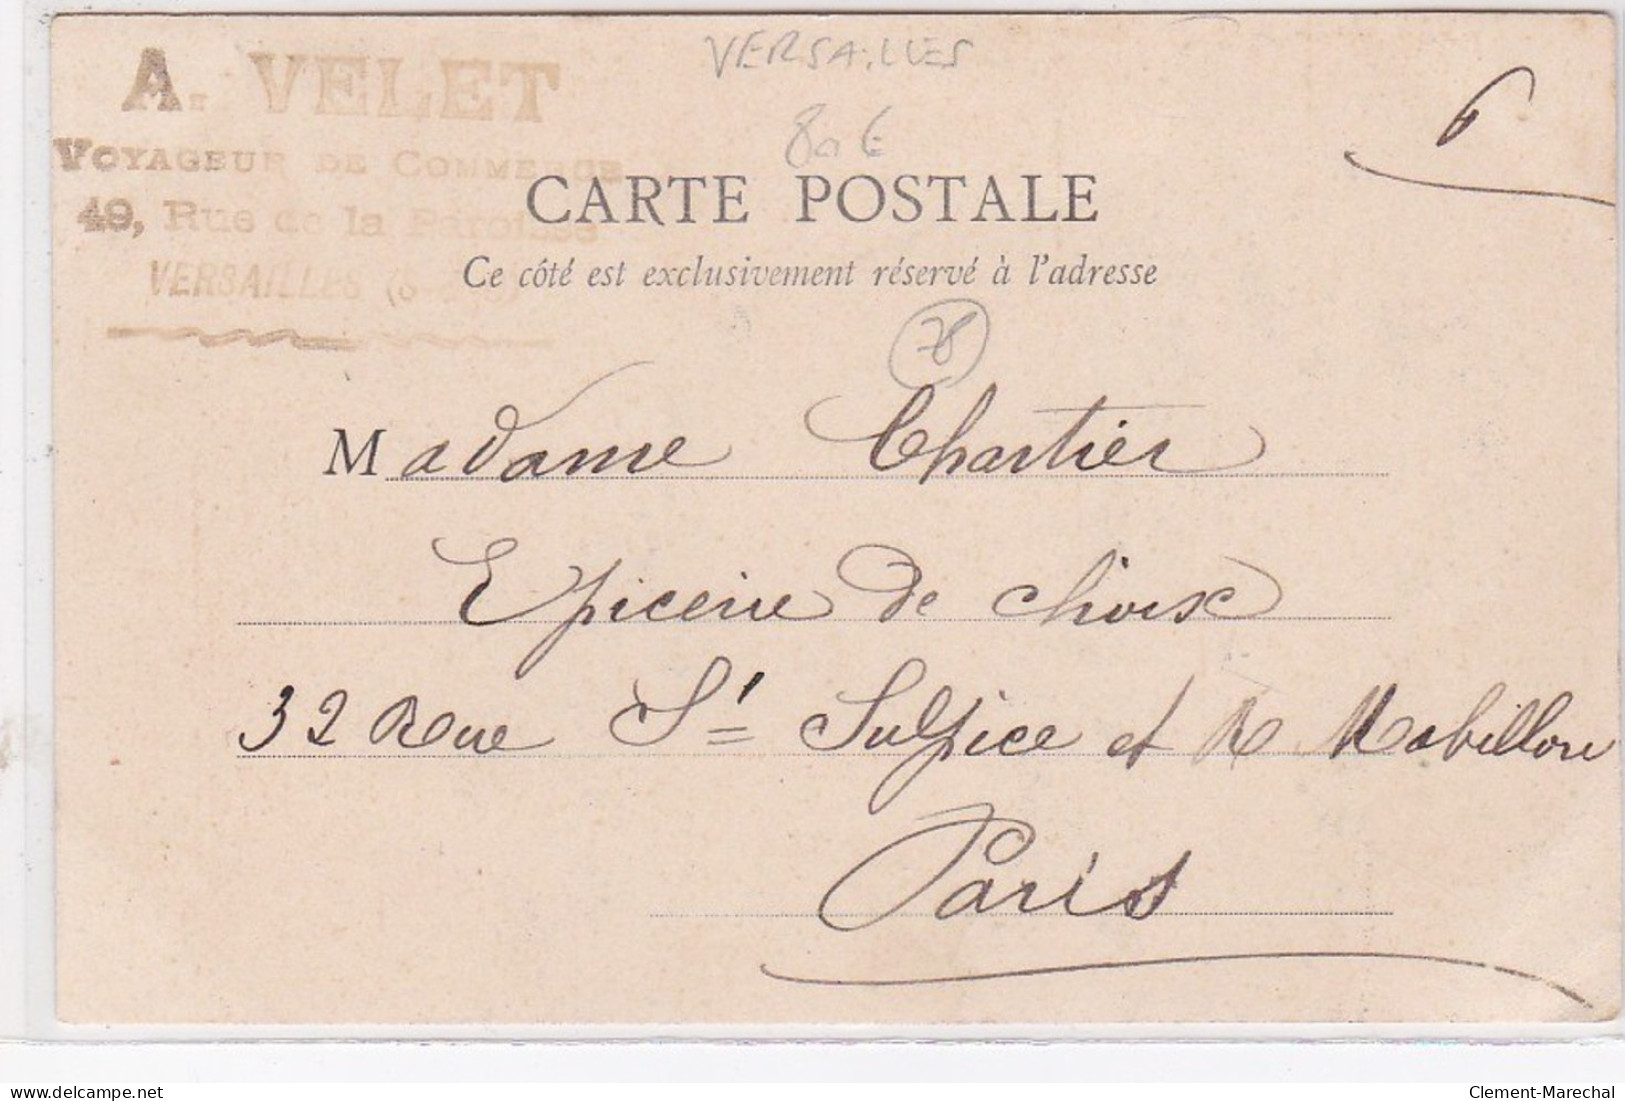 A. VELET
VERSAILLES
6
VOYAGEUR DE COMMERCE
80 €
49, Rue de la Paroisse
CARTE POSTALE
VERSAILLES
Ce côté est exclusivement réservé à l'adresse
78
Madame Chartier
Epicerie de choix
32 Rue St Sulpice et R Mabillon
Paris
Clement-Marechal